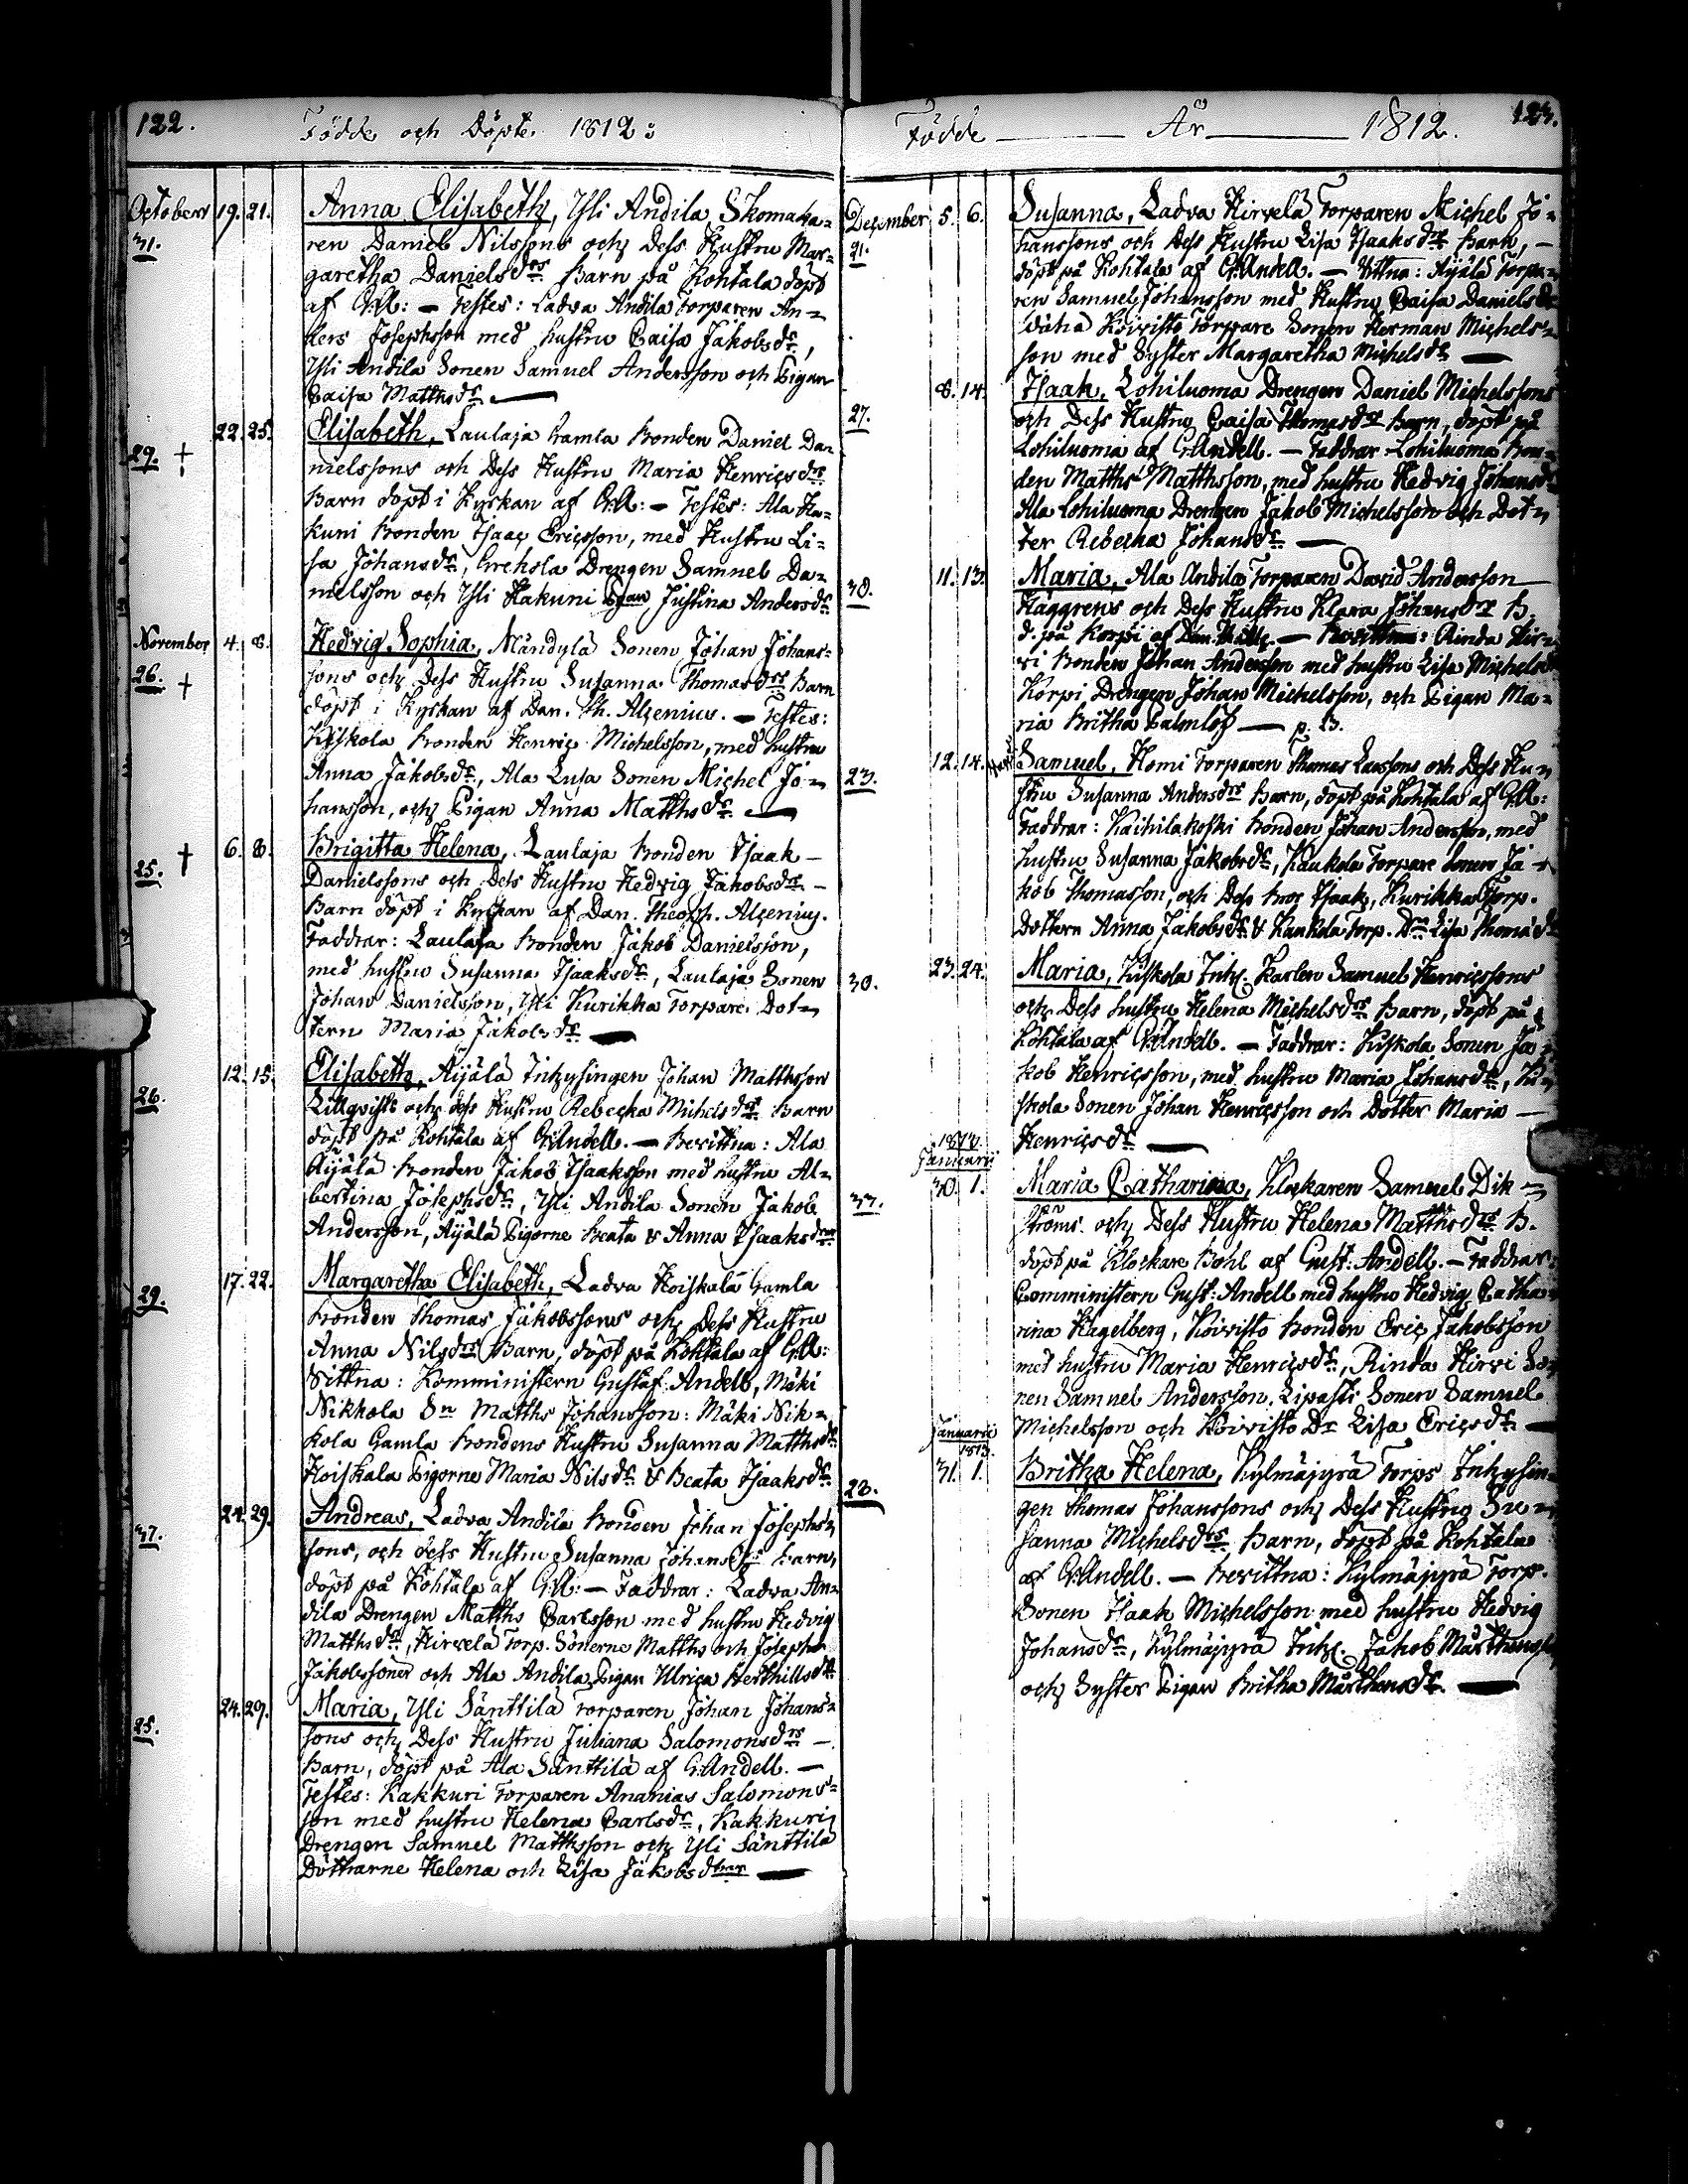 122.
Födde och Döpte 1812:
October 19. 21. Anna Elisabeth, Yli Andila Skomaka=
31. ren Daniel Nilssons och Dess Hustru Mar=
garetha Danielsdrs Barn på Kohtala döpt
af G:A: — Testes: Ladva Andila Torparen An=
ders Josephsson med hustru Caisa Jakobsdr,
Yli Andila Sonen Samuel Andersson och Pigan
Caisa Matthsdr —
22. 25. Elisabeth, Laulaja Gamla Bonden Daniel Da=
29. † nielssons och Dess Hustru Maria Henricsdrs
Barn döpt i Kyrkan af G:A: — Testes: Ala Ha=
kuni Bonden Isaac Ericsson, med Hustru Li=
sa Johansdr, Drengen Samuel Da=
nielsson och Yli Hakuni Pigan Justina Andersdr
November 4. 8. Hedvig Sophia, Mändylä Sonen Johan Johans=
26. † sons och Dess Hustru Susanna Thomasdrs Barn
döpt i Kyrkan af Dan. Th. Alcenius. — Testes:
Kiskola Bonden Henric Michelsson, med hustru
Anna Jakobsdr, Ala Lusa Sonen Michel Jo=
hansson, och Pigan Anna Matthsdr —
6. 8. Brigitta Helena, Laulaja Bonden Isaak —
25. † Danielssons och Dess Hustru Hedvig Jakobsdrs —
Barn döpt i Kyrkan af Dan. Theoph. Alcenius.
Faddrar: Laulaja Bonden Jakob Danielsson,
med hustru Susanna Isaaksdr, Laulaja Sonen
Johan Danielsson, Yli Kurikka Torpare Dot=
tern Maria Jakobsdr —
12. 15. Elisabeth, Äijälä Inhysingen Johan Matthsson
26. Lillqvists och dess Hustru Rebecka Michelsdrs Barn
döpt på Kohtala af G:Andell. — Bevittna: Ala
Äijälä Bonden Jakob Isaaksson med hustru Al=
bertina Josephsdr, Yli Andila Sonen Jakob
Andersson, Äijälä Pigorne Beata & Anna Isaaksdrar
17. 22. Margaretha Elisabeth, Ladva Koiskala Gamla
29. Bonden Thomas Jakobssons och Dess Hustru
Anna Nilsdrs Barn, döpt på Kohtala af G:A:
Vittna: Komministern Gustaf Andell, Mäki
Nikkola Sn Matths Johansson: Mäki Nik=
kola Gamla Bondens Hustru Susanna Matthsdr
Koiskala Pigorne Maria Nilsdr & Beata Isaaksdr
24. 29. Andreas, Ladva Andila Bonden Johan Josephs=
37. sons, och dess Hustru Susanna Johansdrs Barn,
döpt på Kohtala af G:A: — Faddrar: Ladva An=
dila Drengen Matths Carlsson med hustru Hedvig
Matthsdr, Hirvelä Torp. Sönerne Matths och Joseph
Jakobssoner och Ala Andila Pigan Ulrica Berthillsdr
24. 29. Maria, Yli Sänttilä Torparen Johan Johans=
25. sons och Dess Hustru Juliana Salomonsdrs —
Barn, döpt på Ala Sänttilä af G:Andell. —
Testes: Kakkuri Torparen Ananias Salomons=
son med hustru Helena Carlsdr, Kakkuri
Drengen Samuel Matthsson och Yli Sänttilä
Döttrarne Helena och Lisa Jakobsdtrar —
Födde — År — 1812. 123.
December 5. 6. Susanna, Ladva Hirvelä Torparen Michel Jo=
21. hanssons och Dess Hustru Lisa Isaaksdrs Barn, —
döpt på Kohtala af G:Andell. — Vittna: Äijälä Torpa=
ren Samuel Johansson med Hustru Caisa Danielsdr
Koivisto Torpare Sonen Herman Michels=
son med Syster Margaretha Michelsdr —
8. 14. Isaak, Lohiluoma Drengen Daniel Michelssons
27. och Dess Hustru Caisa Thomasdrs Barn, döpt på
Lohiluoma af G:Andell. — Faddrar Lohiluoma Bon=
den Matths Matthsson, med hustru Hedvig Johansdr
Ala Lohiluoma Drengen Jakob Michelsson och Dot=
ter Rebecka Johansdr —
11. 13. Maria, Ala Andila Torparen David Andersson —
30. Häggrens och Dess Hustru Klara Johansdrs B.
d. på Korpi af — Bevittna: Rinda Hir=
vi Bonden Johan Andersson med hustru Lisa Michelsdr
Korpi Drengen Johan Michelsson, och Pigan Ma=
ria Britha Palmlöf — p. B.
12. 14. Samuel, Homi Torparen Thomas Larssons och Dess Hu=
23. stru Susanna Andersdrs Barn, döpt på Kohtala af G:A:
Faddrar: Kaihilakoski Bonden Johan Andersson, med
hustru Susanna Jakobsdr, Kaukola Torpare Sonen Ja=
kob Thomasson, och Dess Bror Isaak, Kurikka Torp.
Dottern Anna Jakobsdr & Kaukola Torp. Dn Lisa Thomasdr
23. 24. Maria, Kiskola Inh. Karlen Samuel Henricssons
30. och Dess hustru Helena Michelsdrs Barn, döpt på
Kohtala af G:Andell. — Faddrar: Kiskola Sonen Ja=
kob Henricsson, med hustru Maria Johansdr, Ki=
skola Sonen Johan Henricsson och Dotter Maria —
Henricsdr —
1813.
Januarii
30. 1. Maria Catharina, Klockaren Samuel Dik=
37. ströms och Dess Hustru Helena Matthsdrs B.
döpt på Klockare Bohl af Gust: Andell. — Faddrar:
Comministern Gust: Andell med hustru Hedvig Catha=
rina Hagelberg, Koivisto Bonden Eric Jakobsson
med hustru Maria Henricsdr, Rinda Hirvi So=
nen Samuel Andersson, Lipasti Sonen Samuel
Michelsson och Koivisto Dr Lisa Ericsdr —
Januarii
1813.
31. 1. Britha Helena, Kylmäjyrä Torps Inhysin=
23. gen Thomas Johanssons och Dess Hustru Su=
sanna Michelsdrs Barn, döpt på Kohtala
af G:Andell. — Bevittna: Kylmäjyrä Torp.
Sonen Isaak Michelsson med hustru Hedvig
Johansdr, Kylmäjyrä Inh. Jakob Mårthensson
och Syster Pigan Britha Mårthensdr —